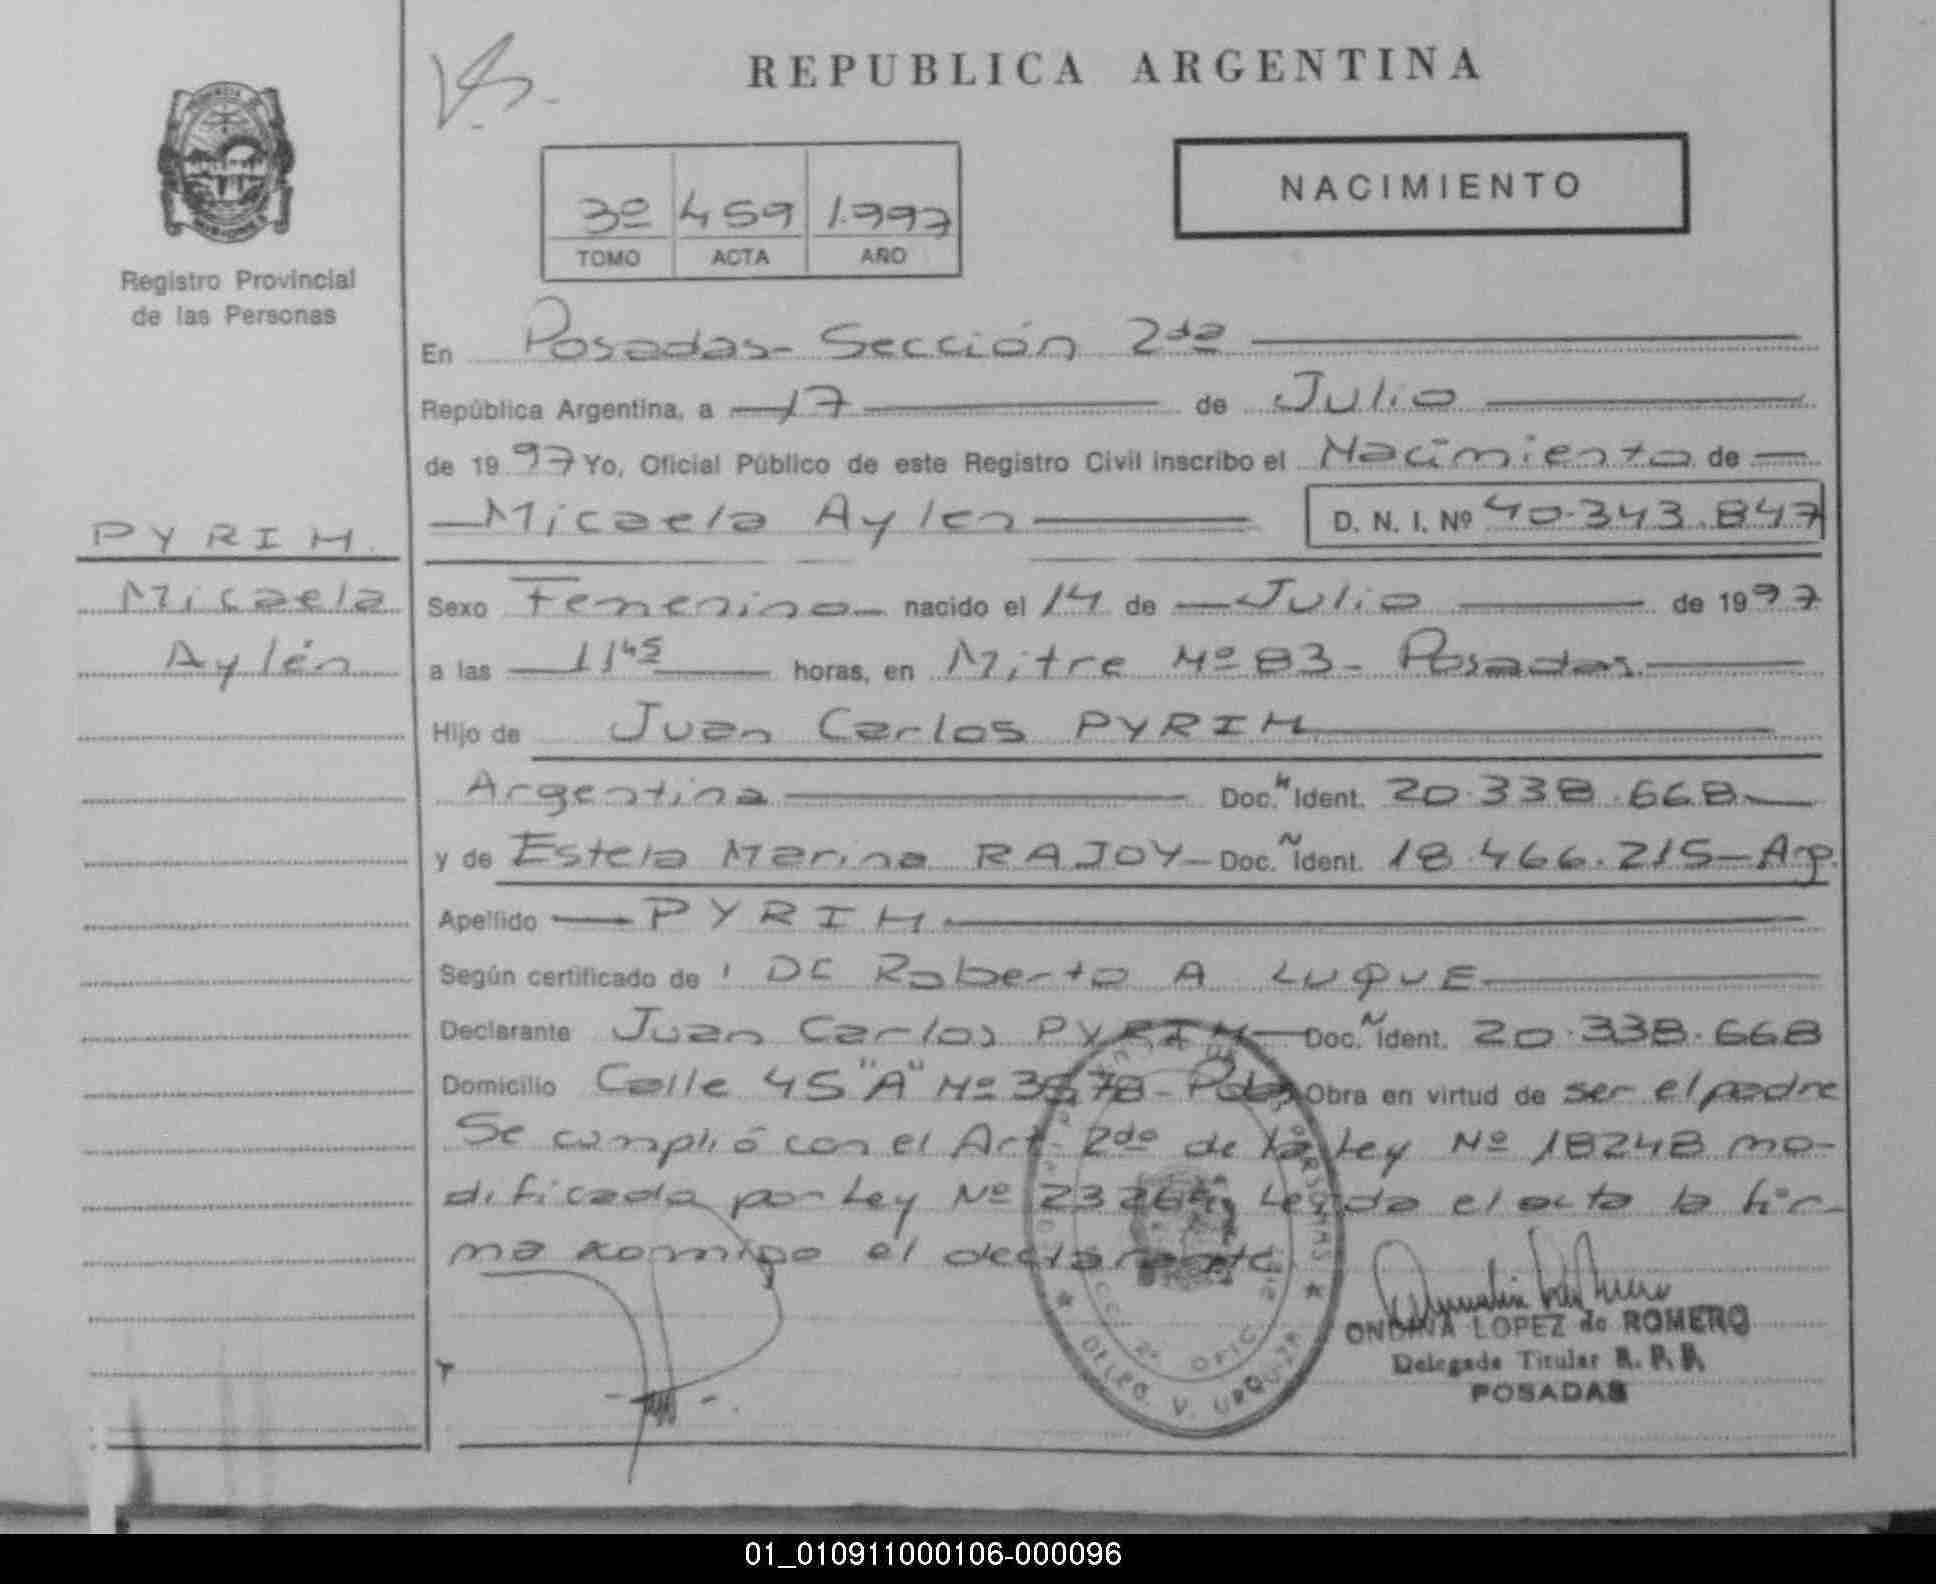 REPUBLICA ARGENTINA
NACIMIENTO
3º 459 1.997
TOMO ACTA AÑO
Registro Provincial
de las Personas
En Posadas- Sección 2da
República Argentina, a 17 de Julio
de 1997 Yo, Oficial Público de este Registro Civil inscribo el Nacimiento de
Micaela Aylen D. N. I. Nº 40.343.847
PYRIH.
Micaela
Aylén
Sexo Femenino nacido el 14 de Julio de 1997
a las 11 45 horas, en Mitre Nº 83 - Posadas.
Hijo de Juan Carlos PYRIH
Argentina Doc. Ident. 20.338.668
y de Estela Marina RAJOY - Doc. Ident. 18.466.215 - Arg.
Apellido PYRIH
Según certificado de Roberto A LUQUE
Declarante Juan Carlos PYRIH Doc. Ident. 20.338.668
Domicilio Calle 45 "A" Nº Obra en virtud de ser el padre
Se cumplió con el Art. 2do de la Ley Nº 18248 mo-
dificada por Ley Nº Leída el acta la fir-
ma conmigo el declarante
LOPEZ de ROMERO
Delegada Titular R. P. P.
POSADAS
SECC. 2ª OFIC.
DELEG. V. URQUIZA
01_010911000106-000096